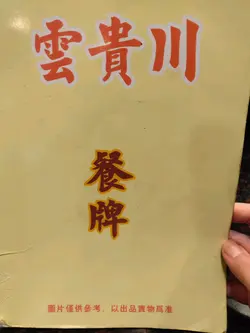 雲貴川
餐牌
圖片僅供參考，以出品實物爲准